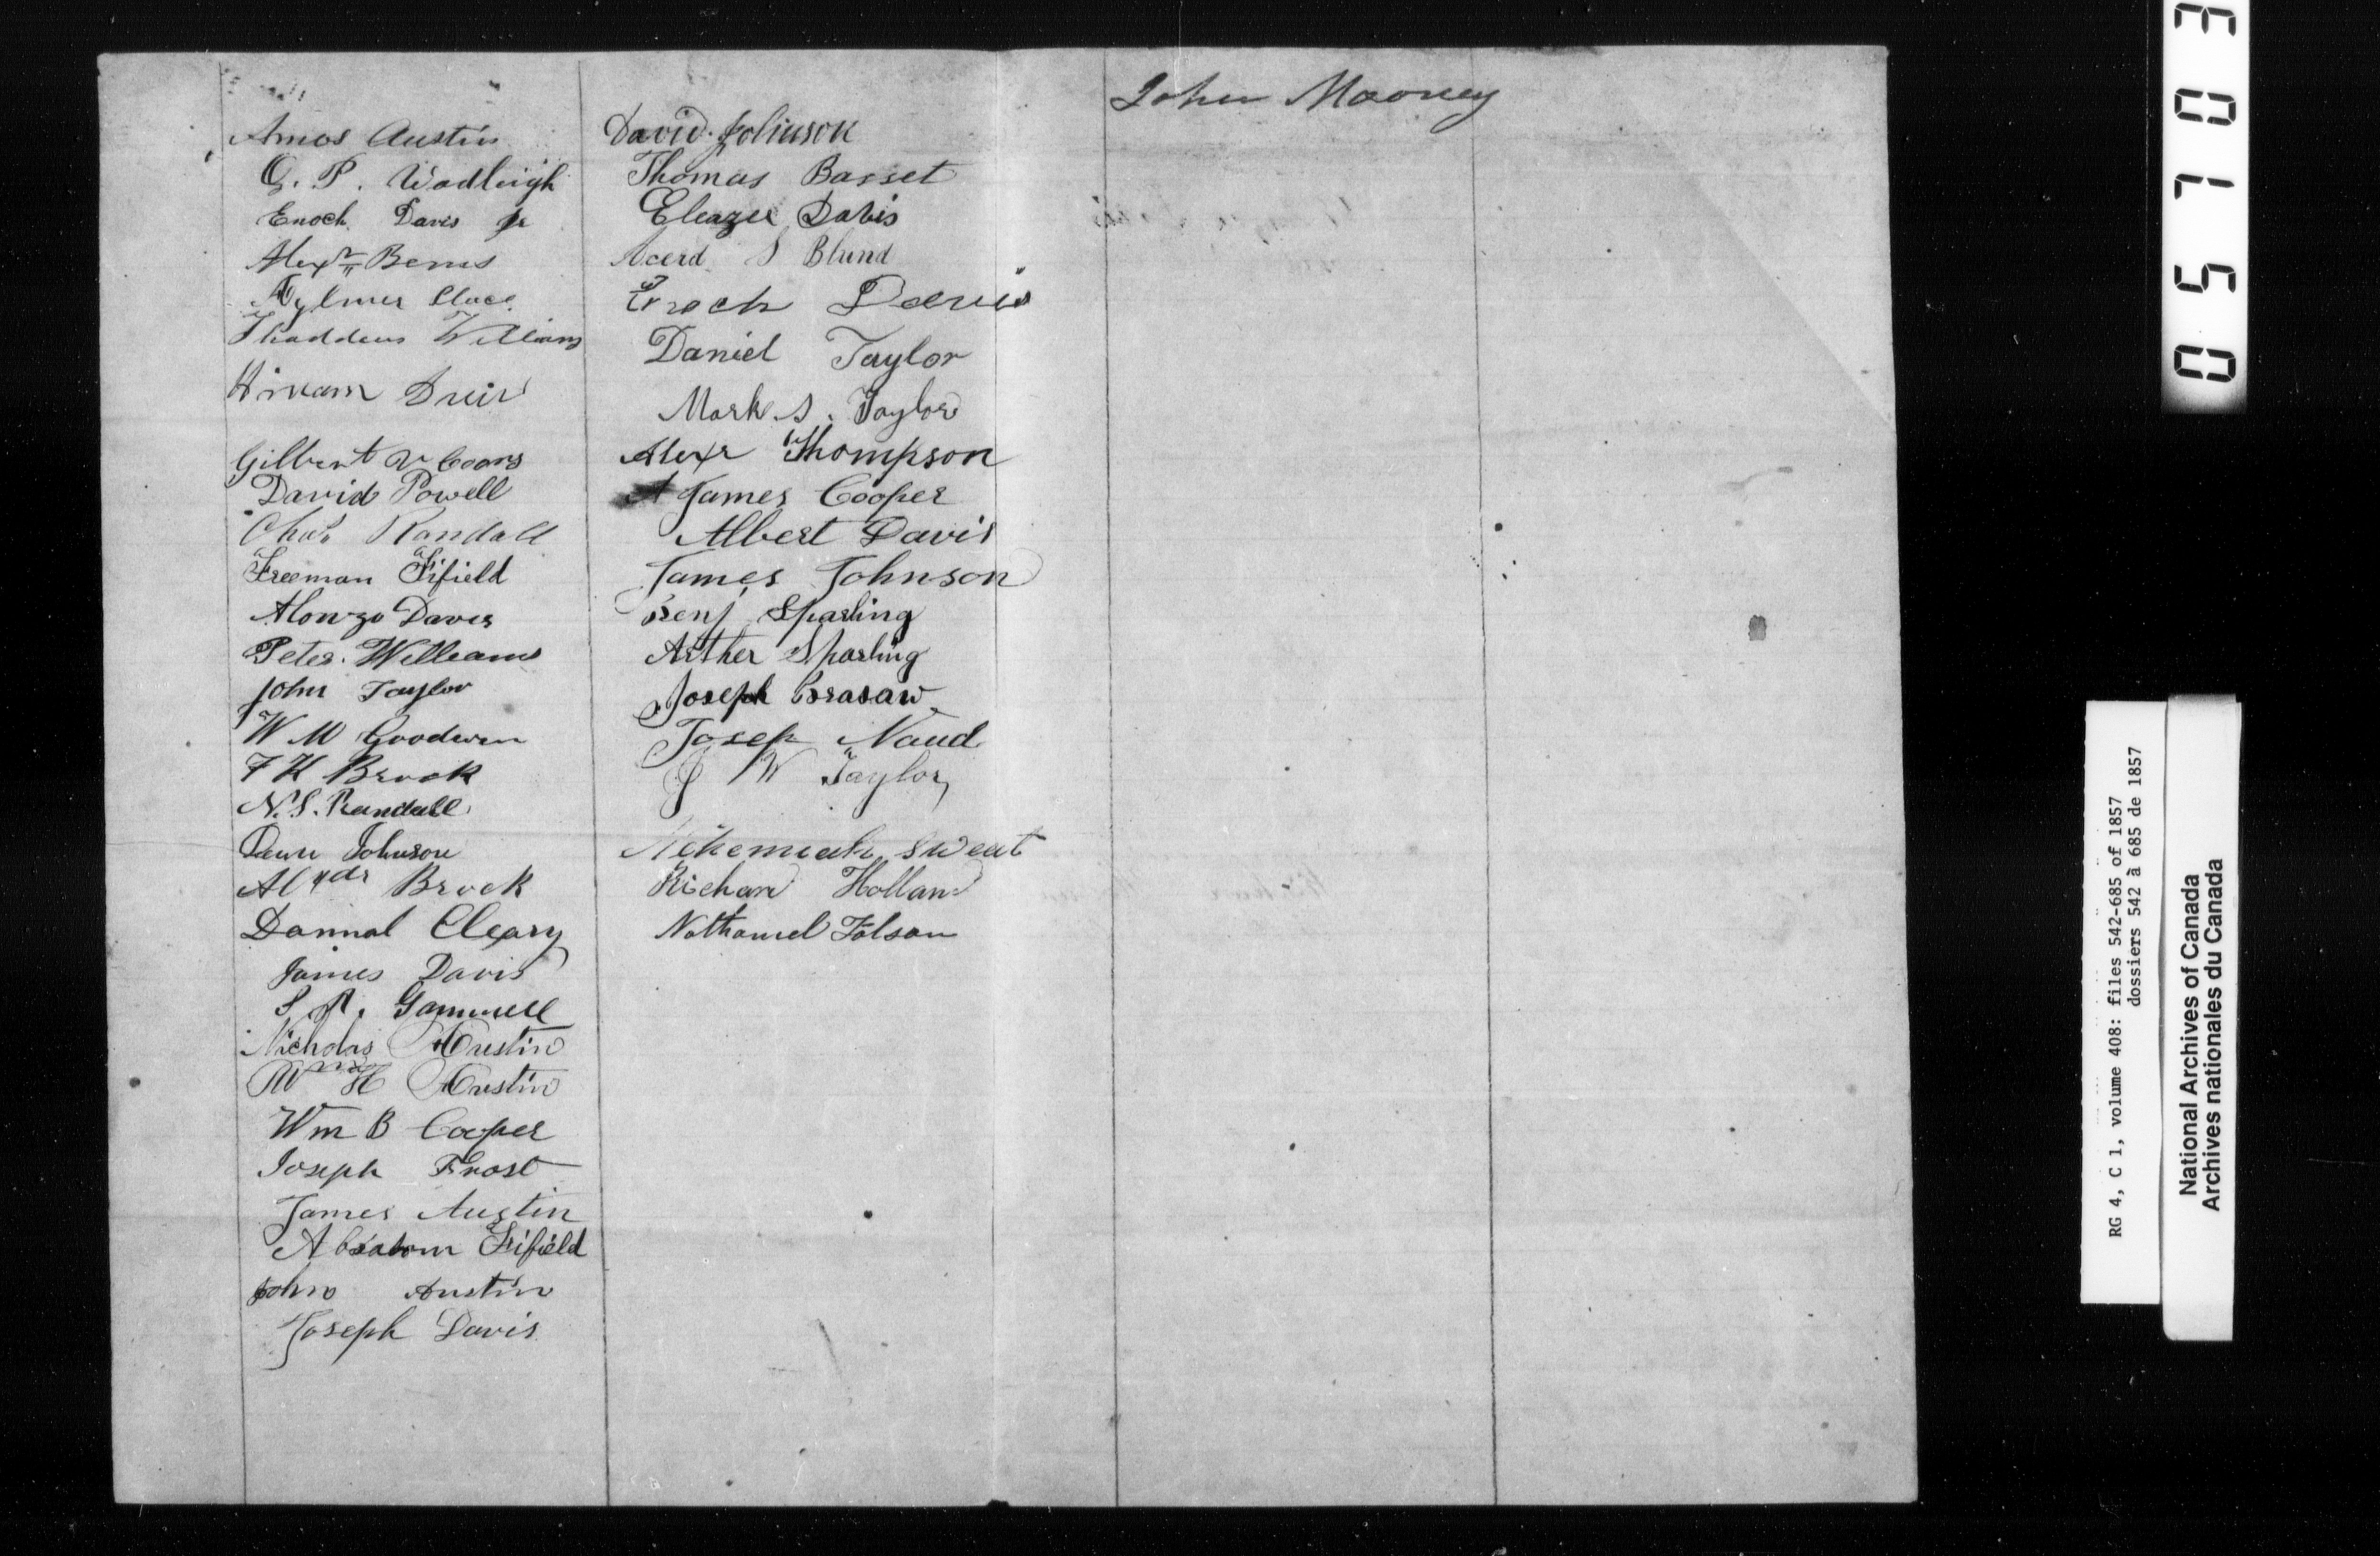 Amos Austin
G. P. Wadleigh
Enoch Davis Jr
Alexr Bemis
Aylmer Place
Thaddeus Williams
Hiram
Gilbert
David Powell
Chas Randall
Freeman Fifield
Alonzo Davis
Peter. Williams
John Taylor
W M Goodwin
F H Brock
N. S. Randall
Johnson
Alxdr Brock
Dannal Cleary
James Davis
S A. Gammell
Nicholas Austin
Wm H Austin
Wm B Cooper
Joseph Frost
James Austin
Absalom Fifield
John Austin
Joseph Davis
David. Johnson
Thomas Basset
Eleazer Davis
S Blund
Enoch Davis
Daniel Taylor
Mark S. Taylor
Alexr Thompson
A James Cooper
Albert Davis
James Johnson
Benj Sparling
Arther Sparling
Joseph Brasaw
Josep Naud
J W Taylor
Nehemiah Sweat
Richard Holland
Nathaniel Folsom
John Mooney
05103
RG 4, C 1, volume 408: files 542-685 of 1857
dossiers 542 à 685 de 1857
National Archives of Canada
Archives nationales du Canada